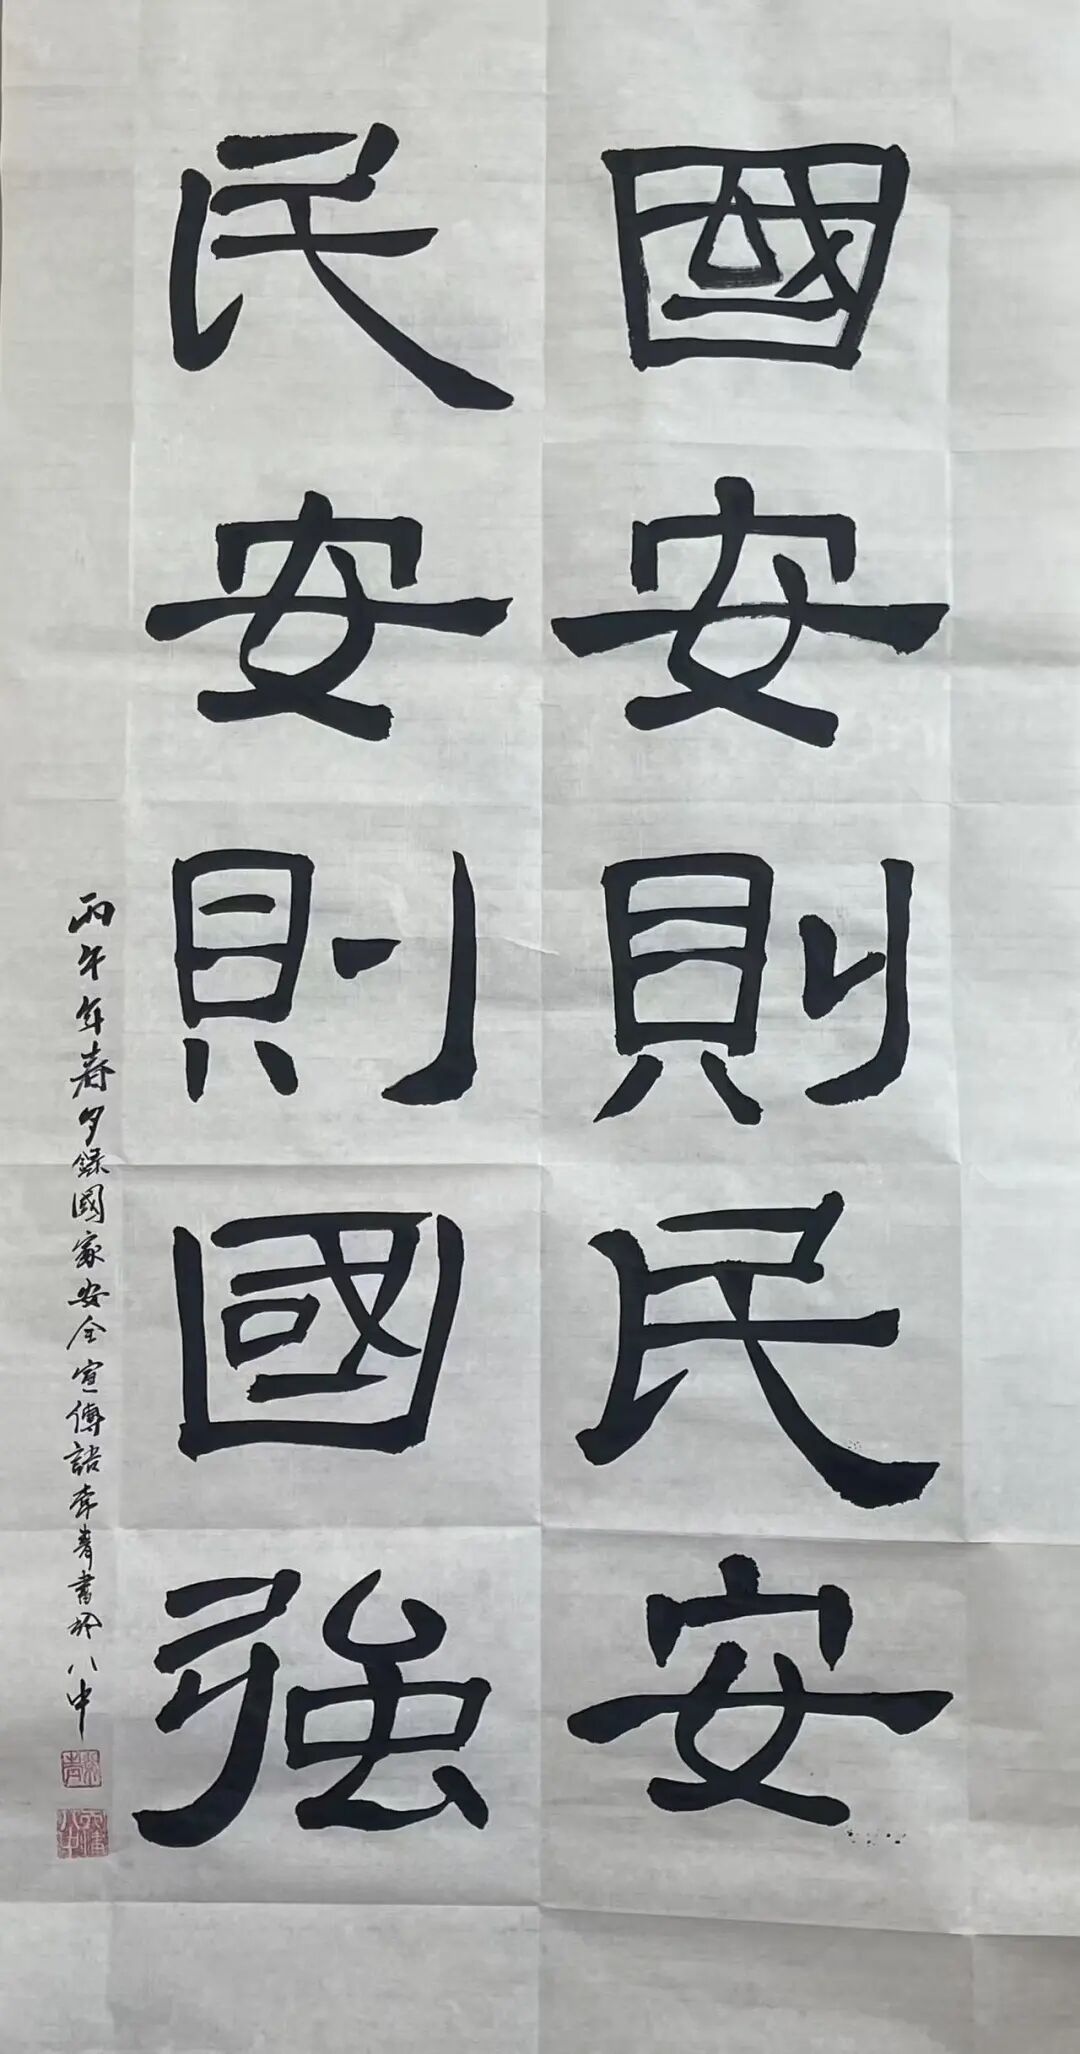 國安則民安
民安則國強
丙午年春夕錄國家安全宣傳語李青書於八中